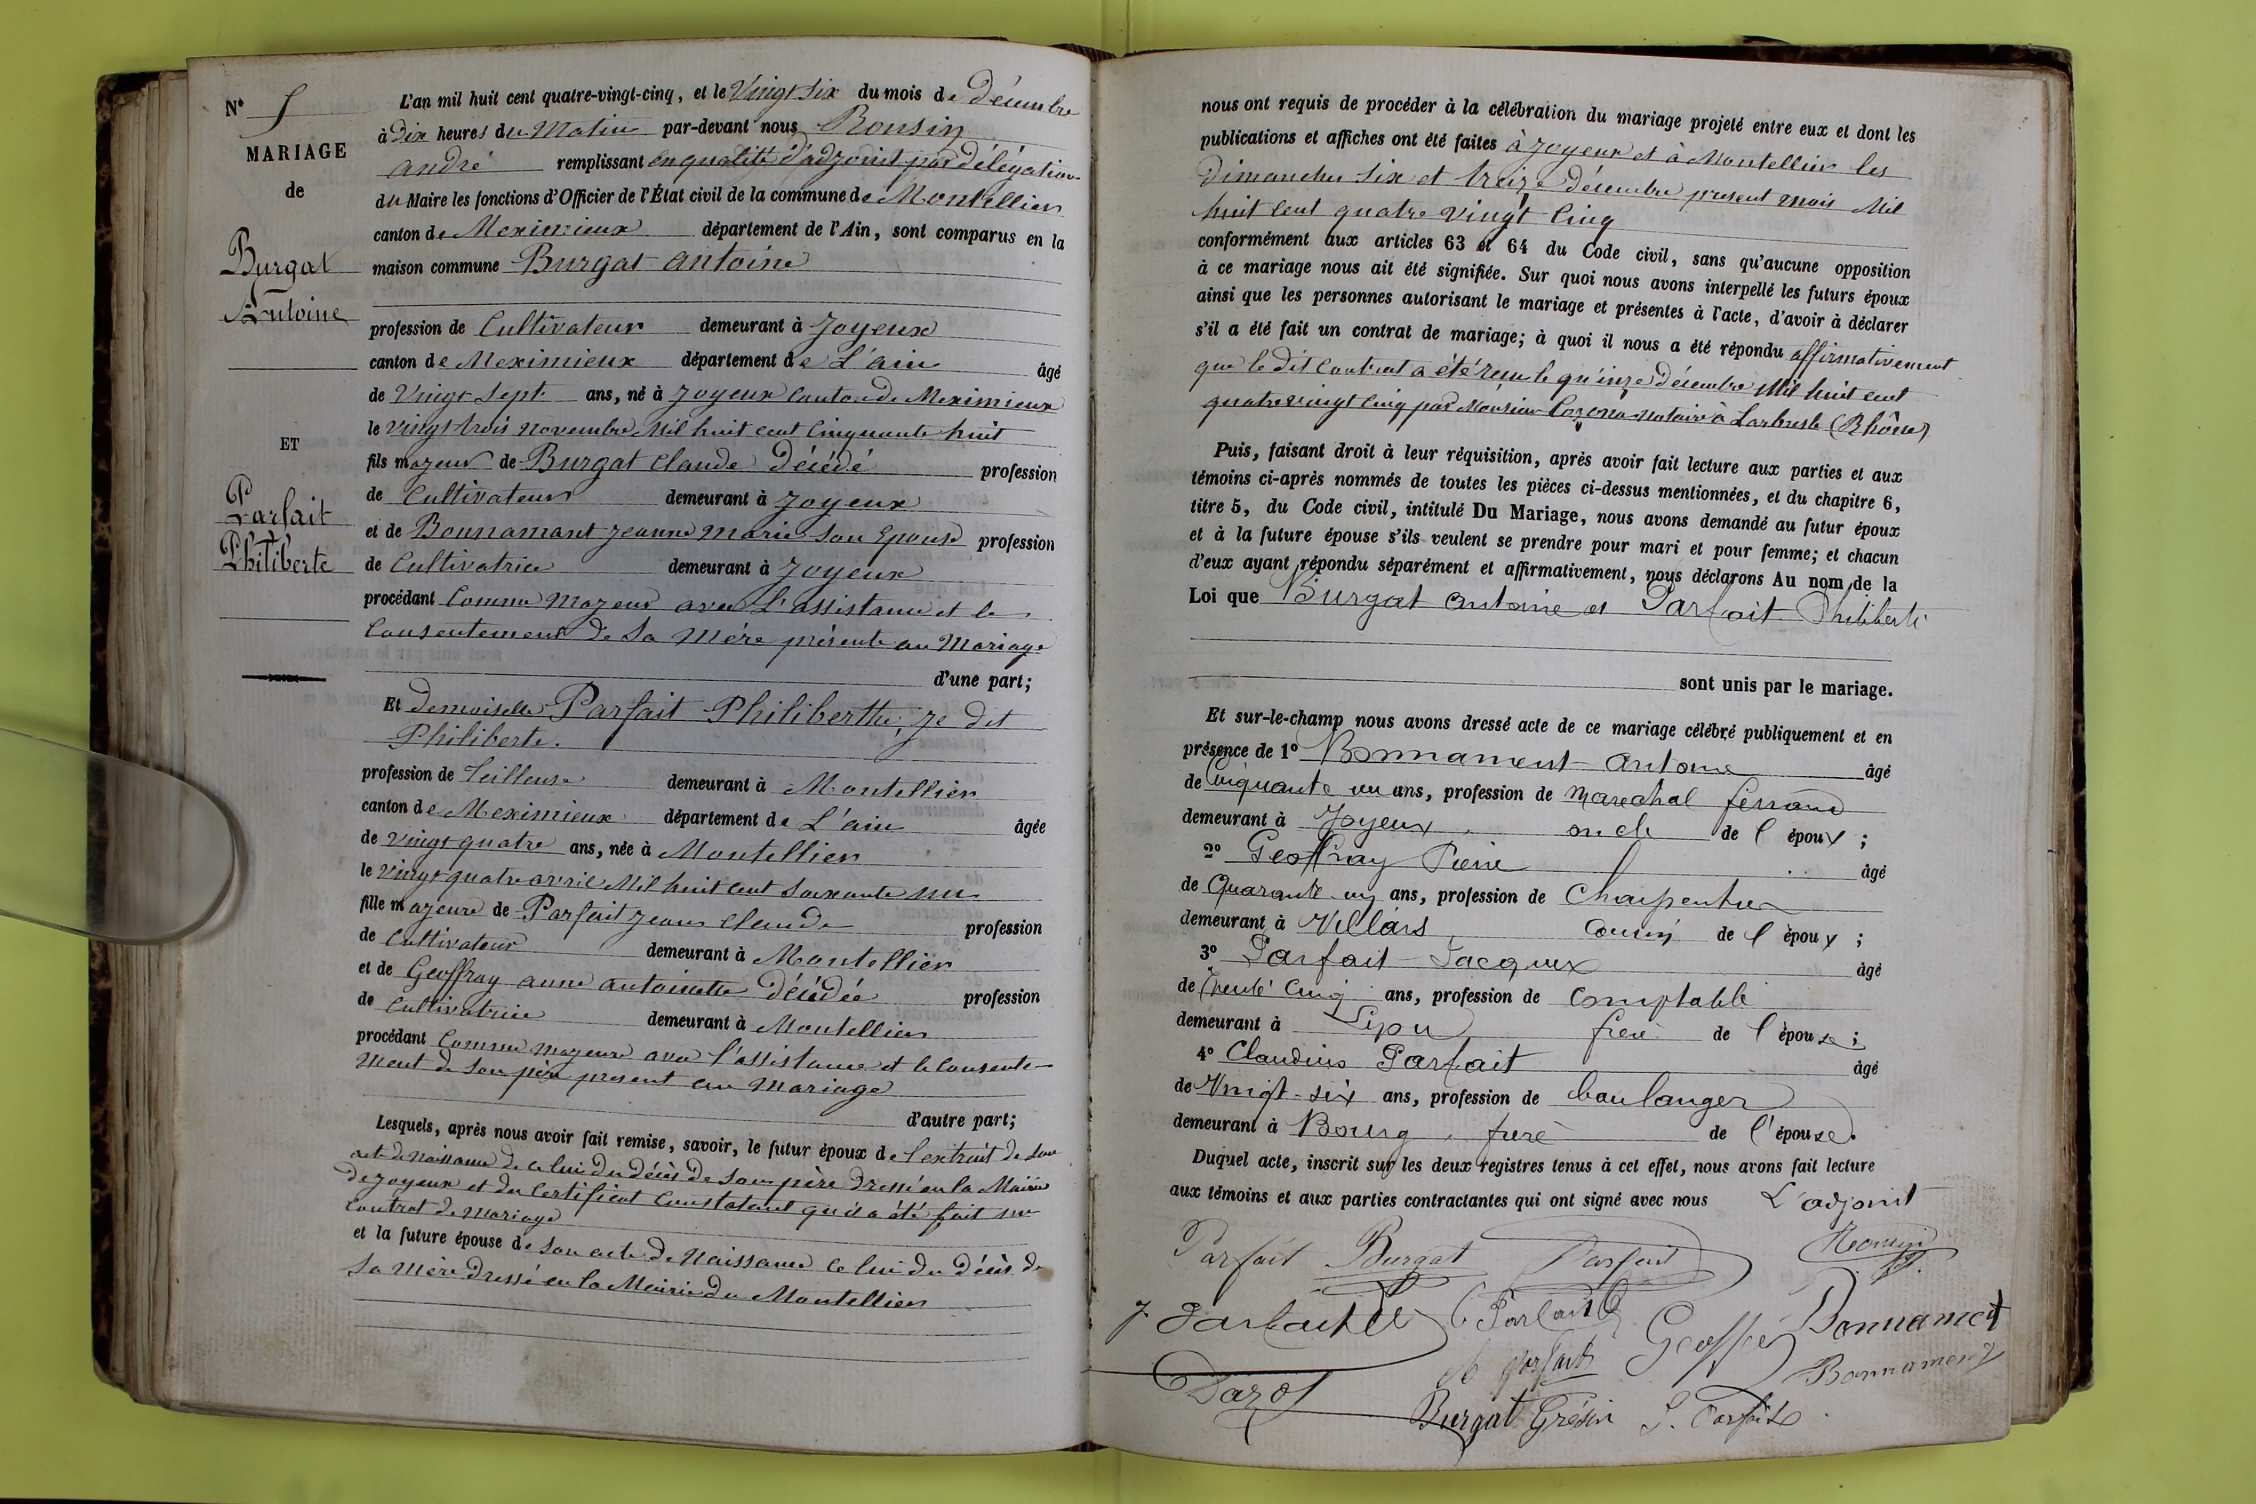 N° 5
MARIAGE
de
Burgat
Antoine
ET
Parfait
Philiberte
L'an mil huit cent quatre-vingt-cinq, et le Vingt six du mois de décembre
à Dix heures du Matin par-devant nous Rousin
andré remplissant en qualité d'adjoint par délégation
du Maire les fonctions d'Officier de l'État civil de la commune de Montellier
canton de Meximieux département de l'Ain, sont comparus en la
maison commune Burgat antoine
profession de Cultivateur demeurant à Joyeux
canton de Meximieux département de L'ain âgé
de Vingt sept ans, né à Joyeux Canton de Meximieux
le vingt trois novembre Mil huit cent Cinquante huit
fils majeur de Burgat Claude Décédé profession
de Cultivateur demeurant à Joyeux
et de Bonnamant Jeanne Marie son Epouse profession
de Cultivatrice demeurant à Joyeux
procédant Comme Majeur avec L'assistance et le
Consentement de sa Mère présente au Mariage
d'une part;
Et demoiselle Parfait Philiberthe, je dit
Philiberte.
profession de Teilleuse demeurant à Montellier
canton de Meximieux département de L'ain âgée
de vingt quatre ans, née à Montellier
le Vingt quatre avril Mil huit cent soixante un
fille majeure de Parfait Jean Claude profession
de Cultivateur demeurant à Montellier
et de Geoffray anne antoinette Décédée profession
de Cultivatrice demeurant à Montellier
procédant Comme majeure avec l'assistance et le Consente-
ment de son père present au mariage
d'autre part;
Lesquels, après nous avoir fait remise, savoir, le futur époux de l'extrait de son
acte de Naissance de celui du décès de son père dressé en la Mairie
de Joyeux et du Certificat Constatant qu'il a été fait un
Contrat de Mariage
et la future épouse de son acte de Naissance celui du décès de
sa mère dressé en la Mairie du Montellier
nous ont requis de procéder à la célébration du mariage projeté entre eux et dont les
publications et affiches ont été faites à Joyeux et à Montellier les
Dimanches six et treize décembre present mois Mil
huit cent quatre vingt Cinq
conformément aux articles 63 et 64 du Code civil, sans qu'aucune opposition
à ce mariage nous ait été signifiée. Sur quoi nous avons interpellé les futurs époux
ainsi que les personnes autorisant le mariage et présentes à l'acte, d'avoir à déclarer
s'il a été fait un contrat de mariage; à quoi il nous a été répondu affirmativement
que le dit Contrat a été reçu le qu'inze décembre Mil huit cent
quatre vingt Cinq par Monsieur notaire à Larbresle (Rhône)
Puis, faisant droit à leur réquisition, après avoir fait lecture aux parties et aux
témoins ci-après nommés de toutes les pièces ci-dessus mentionnées, et du chapitre 6,
titre 5, du Code civil, intitulé Du Mariage, nous avons demandé au futur époux
et à la future épouse s'ils veulent se prendre pour mari et pour femme; et chacun
d'eux ayant répondu séparément et affirmativement, nous déclarons Au nom de la
Loi que Burgat antoine et Parfait Philiberte
sont unis par le mariage.
Et sur-le-champ nous avons dressé acte de ce mariage célébré publiquement et en
présence de 1° Bonnament antoine âgé
de Cinquante un ans, profession de marechal ferrand
demeurant à Joyeux oncle de l'époux;
2° Geoffray Pierre âgé
de Quarante un ans, profession de Charpentier
demeurant à Villars Cousin de l'époux;
3° Parfait Jacques âgé
de trente Cinq ans, profession de Comptable
demeurant à Lyon frere de l'épouse;
4° Claudius Parfait âgé
de Vingt-six ans, profession de boulanger
demeurant à Bourg frere de l'épouse.
Duquel acte, inscrit sur les deux registres tenus à cet effet, nous avons fait lecture
aux témoins et aux parties contractantes qui ont signé avec nous L'adjoint
Parfait Burgat Parfait
J Parfait C Parfait Bonnament
Parfait Bonnament
Burgat J. Parfait